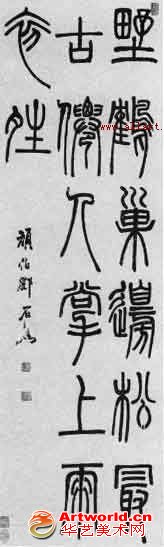 野鶴巢邊松最
古僊人掌上雨
初夝
頑伯鄧石如
Artworld.cn
华艺美术网